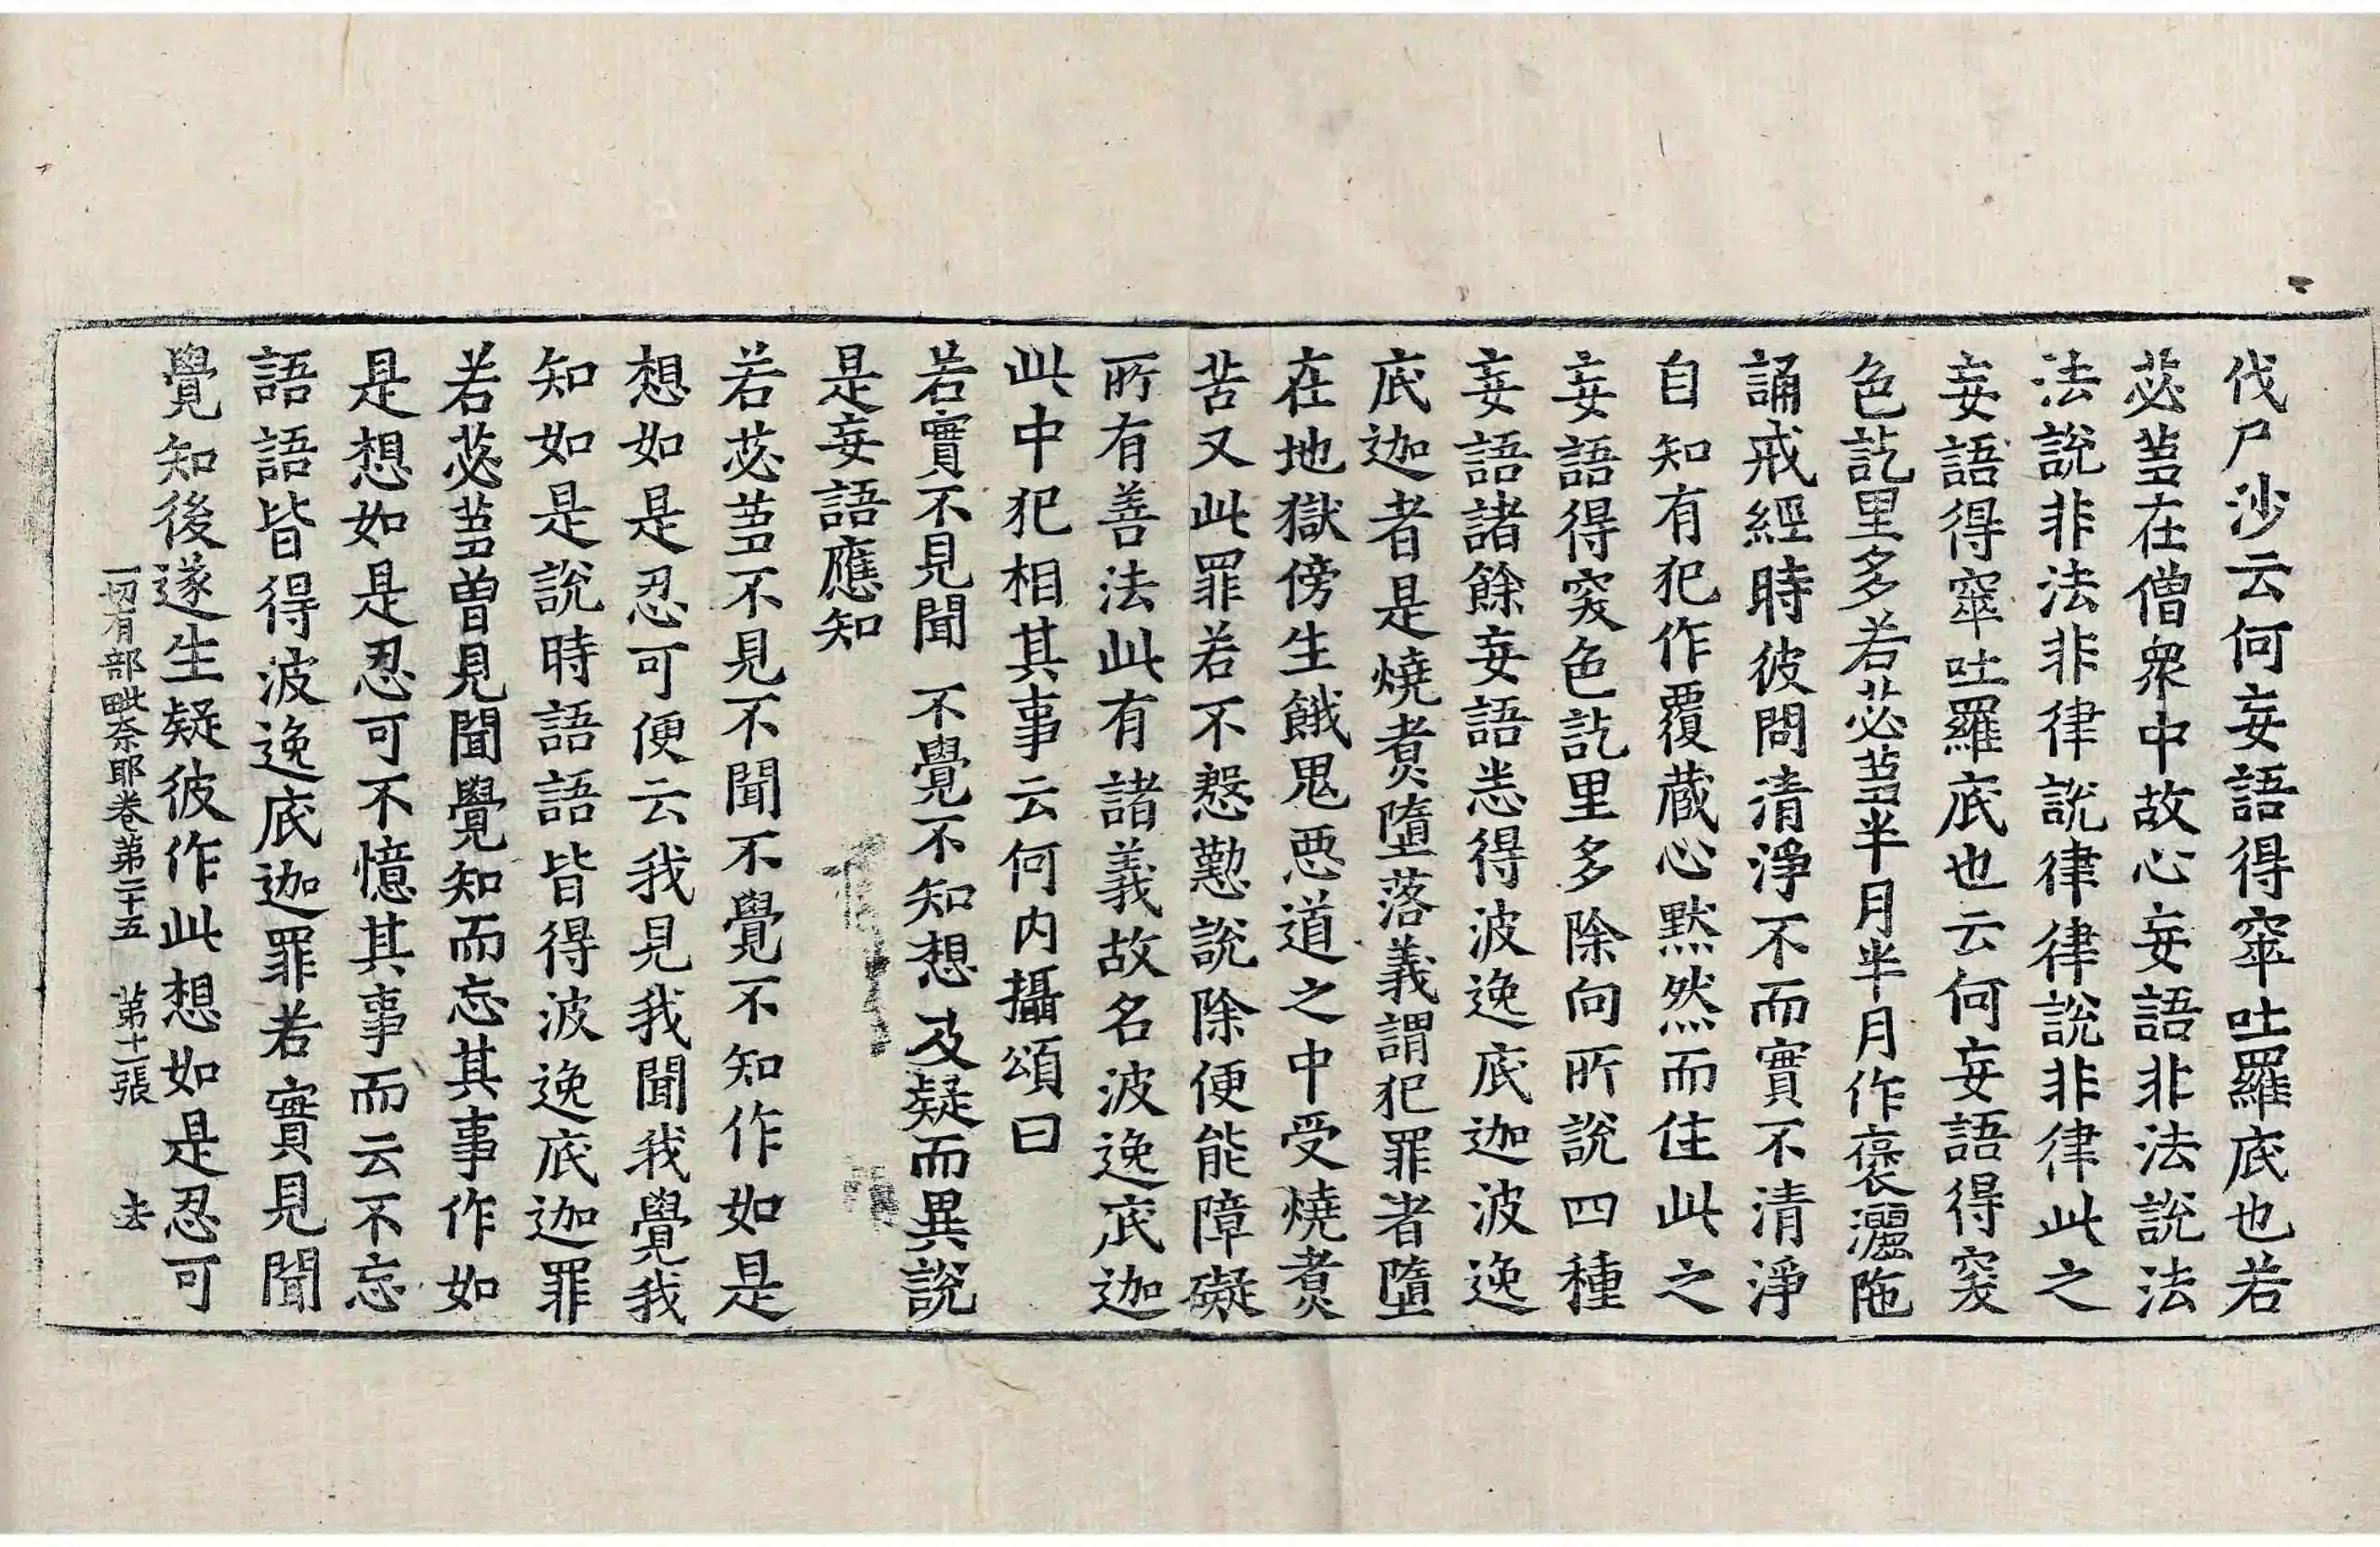 伐尸沙云何妄語得窣吐羅底也若
苾蒭在僧衆中故心妄語非法說法
法說非法非律說律律說非律此之
妄語得窣吐羅底也云何妄語得突
色訖里多若苾蒭半月半月作褒灑陁
誦戒經時彼問清淨不而實不清淨
自知有犯作覆蔵心黙然而住此之
妄語得突色訖里多除向所說四種
妄語諸餘妄語悉得波逸底迦波逸
底迦者是燒煑墮落義謂犯罪者墮
在地獄傍生餓鬼悪道之中受燒煑
苦又此罪若不慇懃說除便能障礙
所有善法此有諸義故名波逸底迦
此中犯相其事云何内攝頌曰
若實不見聞 不覺不知想 及疑而異說
是妄語應知
若苾蒭不見不聞不覺不知作如是
想如是忍可便云我見我聞我覺我
知如是說時語語皆得波逸底迦罪
若苾蒭曽見聞覺知而忘其事作如
是想如是忍可不憶其事而云不忘
語語皆得波逸底迦罪若實見聞
覺知後遂生疑彼作此想如是忍可
一切有部毗奈耶卷第二十五 第十一張 去